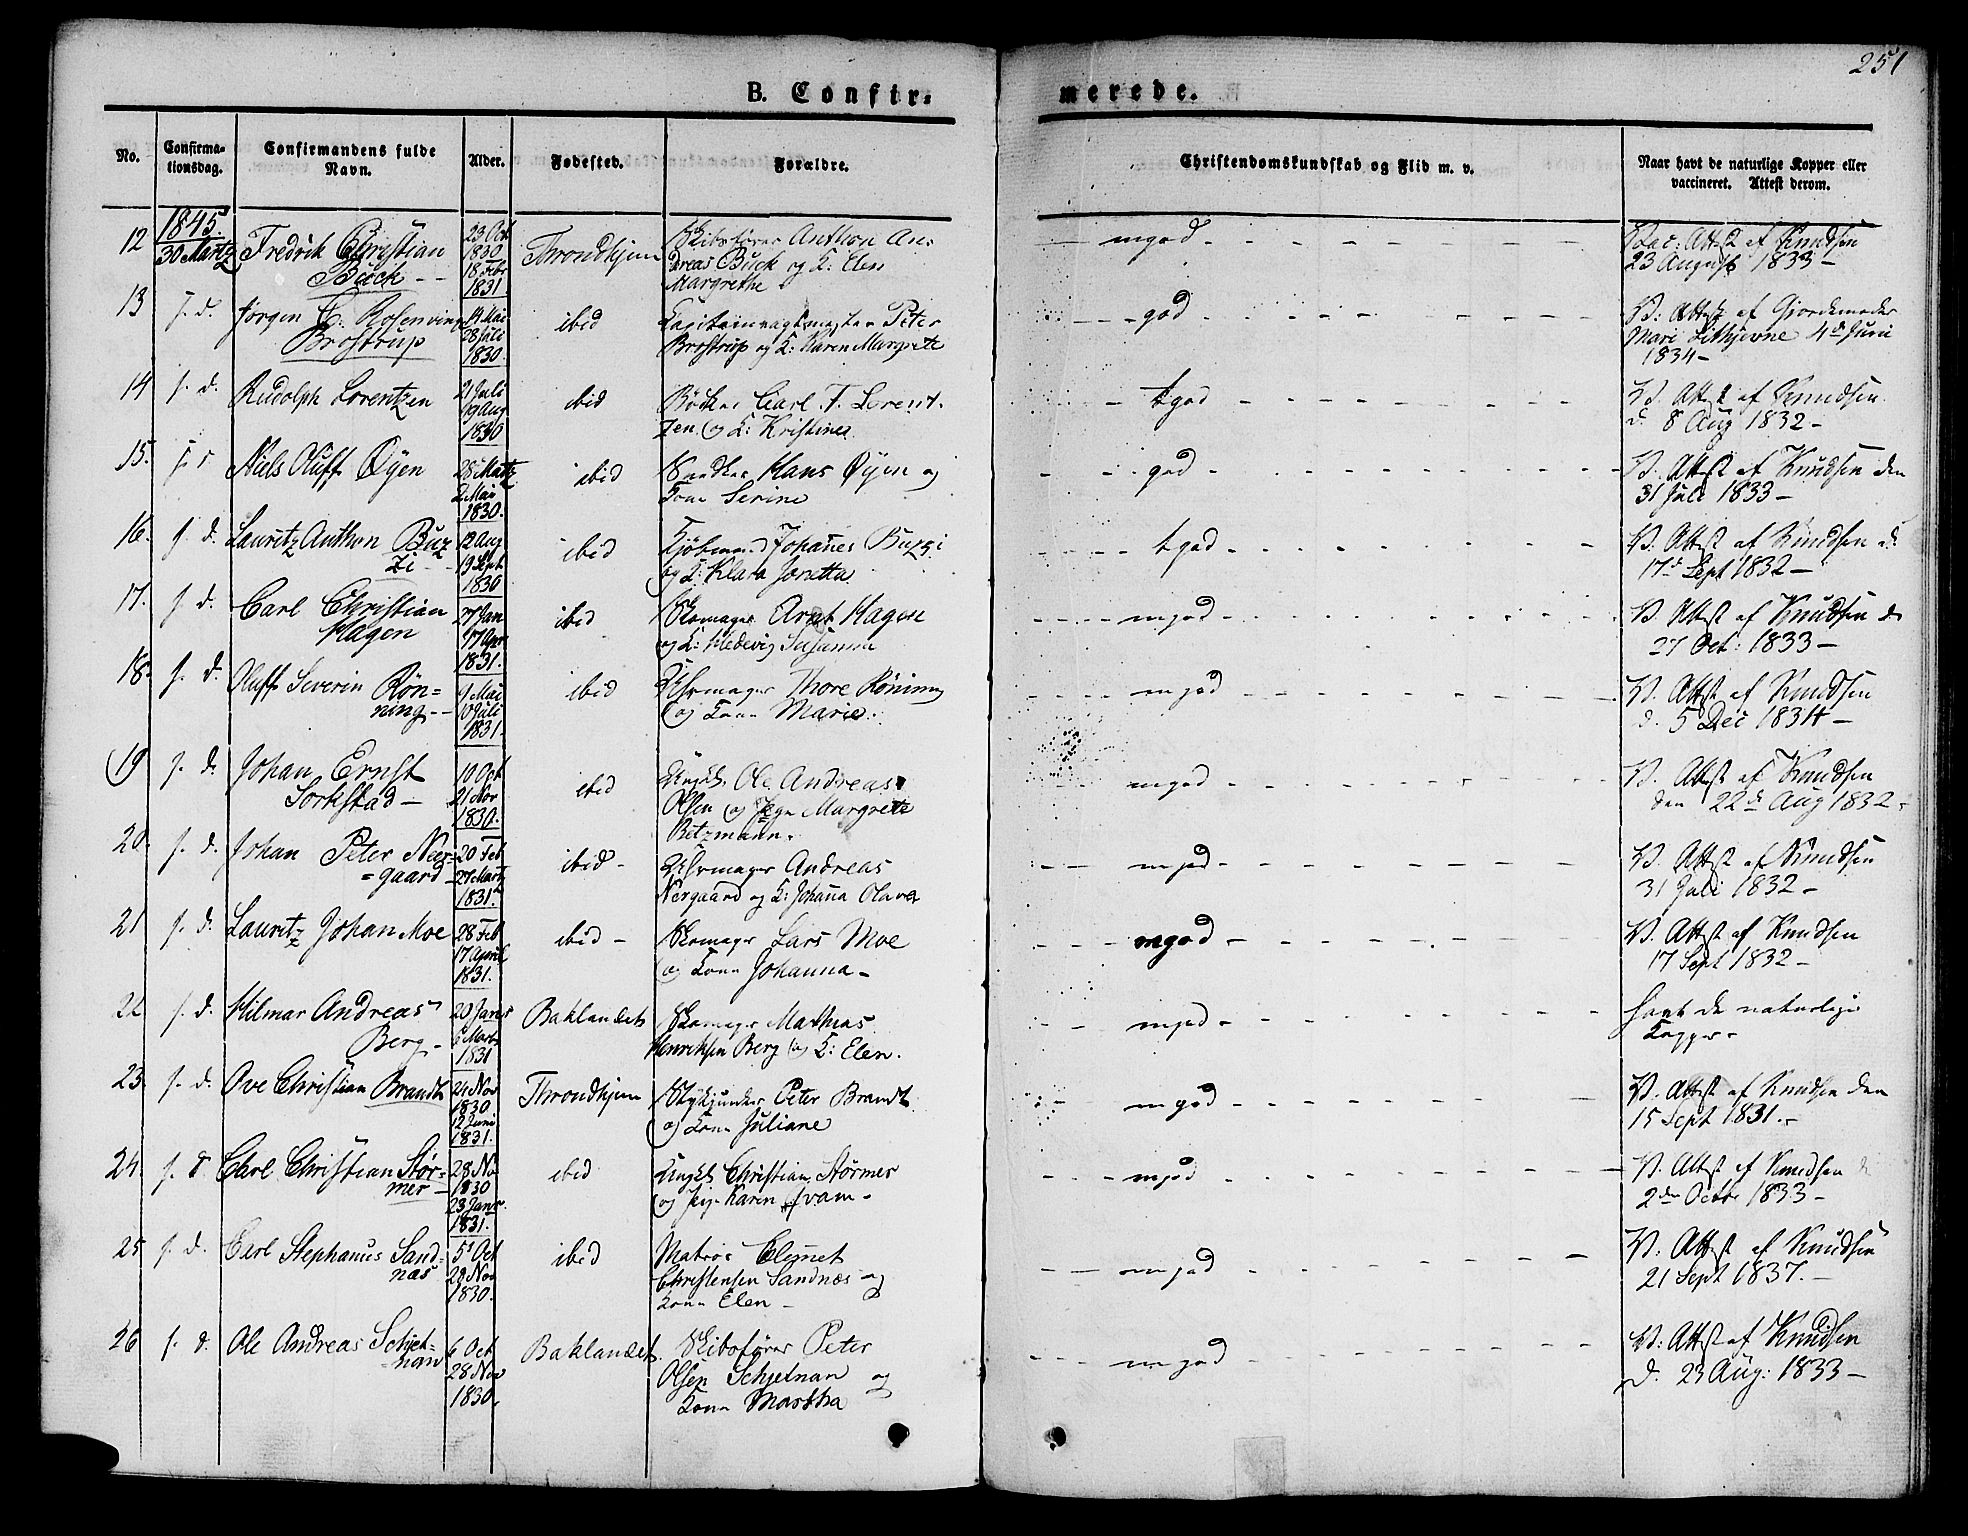 251
B. Confir-
merede.
No.
Confirma-
tionsdag.
Confirmandens fulde
Navn.
Alder.
Fødested.
Forældre.
Christendomskundskab og Flid m. v.
Naar havt de naturlige Kopper eller
vaccineret. Attest derom.
1845.
12 30 Martz Fredrik Christian
Buck
23 Oct
1830
18 Febr
1831.
Throndhjem
Skibsfører Anthon An-
dreas Buck og K: Elen
Margrethe
mgod
Vac: Attst af Knudsen
23 August 1833
13 s. d. Jørgen C: Rosenvinge
Brostrup
14 Mai
28 Juli
1830.
ibid
Peter
Brostrup og K: Karen Margrete
god
V: Attst af Gjordemoder
Mari Lithjevne 4de Juni
1834
14 s. d. Rudolph Lorentzen
21 Juli
29 Aug
1830
ibid
Bödker Carl F. Lorent-
zen og K: Kristine
tgod
V. Attst af Knudsen
d. 8 Aug 1832
15. Niels Oluff Øyen
28 Martz
2 Mai
1830.
ibid
Snedker Hans Øyen og
Kone Serine
god
V. Attst af Knudsen den
31 Juli 1833
16. s. d. Lauritz Anthon Buz
zi
12 Aug
19 Sept
1830
ibid
Kjöbmand Johanes Buzzi
og K: Klara Janetta
tgod
V. Attst af Knudsen d.
17d Sept 1832
17. s. d. Carl Christian
Hagen
27 Jan
17 Apr
1831.
ibid
Skomager Arnt Hagen
og K: Hedevig Susanna
mgod
V. Attst af Knudsen d.
27 Oct: 1833
18. s. d. Oluff Severin Røn-
ning
9 Mai
10 Juli
1831.
ibid
Uhrmager Thore Röning
og Kone Marie.
mgod
V. Attst af Knudsen
d. 5 Dec 1831
19 s. d. Johan Ernst
Sorkstad
10 Oct
21 Nov
1830.
ibid
Ungkl. Ole Andreas
Olsen og Margrete
Retzmann.
mgod
V. Attst af Knudsen
den 22de Aug 1832.
20. s. d. Johan Peter Neer-
gaard
20 Feb
27 Martz
1831.
ibid
Uhrmager Andreas
Nergaard og K: Johana Olava
mgod
V. Attst af Knudsen
31 Juli 1832
21 s. d. Lauritz Johan Moe
28 Feb
17 April
1831.
ibid
Skomager Lars Moe
og Kone Johanna
mgod
V. Attst af Knudsen
17 Sept 1832
22 s. d. Hilmar Andreas
Berg
20 Janr
6 Mart
1831
Baklandet
Skomager Mathias
Henriksen Berg og K: Elen.
mgod
havt de naturlige
Kopper
23. s. d. Ove Christian Brandt
24 Nov
1830
12 Juni
1831.
Throndhjem
Stykjunker Peter Brandt
og Kone Juliane
mgod
V. Attst af Knudsen den
15 Sept 1831.
24. s. d Carl Christian Stør-
mer
28 No
1830
23 Janr.
1831.
ibid
Ungkl Christian Störmer
og Karen Svam
mgod
V. Attst af Knudsen d
2den Octbr 1833
25 s. d. Carl Stephanus Sand-
nas
5 Oct
28 Nov
1830.
ibid
Matros Clemet
Christensen Sandnæs og
Kone Elen
mgod
V. Attst af Knudsen
21 Sept 1837.
26 s. d. Ole Andreas Schjet-
nan
6 Oct
28 Nov
1830.
Baklandet
Skibsfører Peter
Olsen Schjetnan og
Kone Martha
mgod
V. Attst af Knudsen
d. 23 Aug: 1833